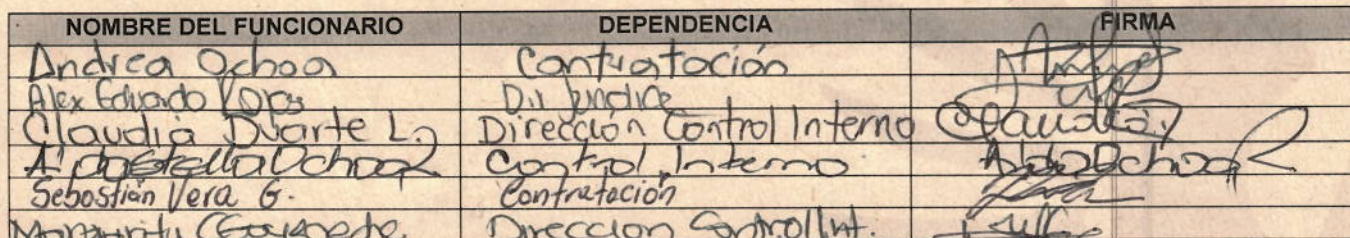 NOMBRE DEL FUNCIONARIO DEPENDENCIA FIRMA
Andrea Ochoa Contratación
Alex Eduardo Rojas Dir Juridica
Claudia Duarte L. Dirección Control Interno Claudia
Aida Stella Ochoa R Control Interno Aida Ochoa R
Sebastián Vera G. Contratación
Dirección Control Int.